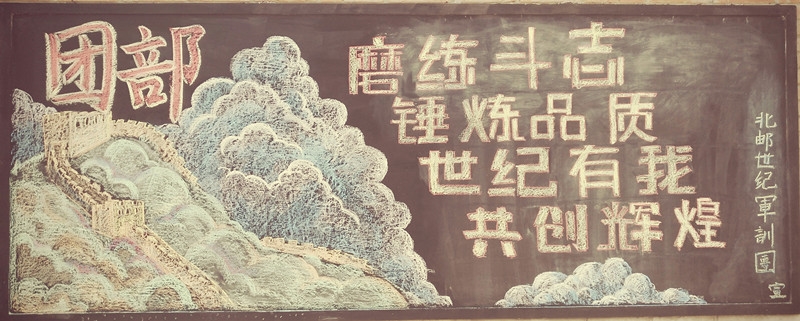 团部
磨练斗志
锤炼品质
世纪有我
共创辉煌
北邮世纪軍訓團
宣